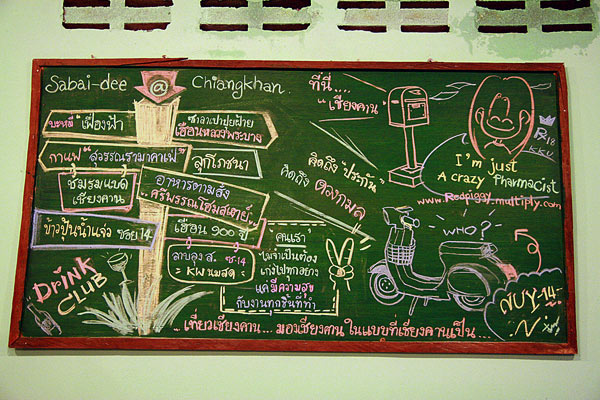 Sabai-dee @ Chiangkhan.
ที่นี่....
"เชียงคาน"
บะหมี่ "เฟื่องฟ้า
ศาลาเปาปุ้นฝ้าย
เฮือนหลวงพระบาง
กาแฟ "สุวรรณรามาคาเฟ่"
สุกี้โภชนา
ชมรมแบด
เชียงคาน
อาหารตามสั่ง
"ศรีพรรณโฮมสเตย์"
เฮือน 900 ปี
ข้าวปุ้นน้ำแจ่ว ซอย 14
ลาบลุง ส. ซ.14
KWนมสด
DRINK
CLUB
คิดถึง "ประกัน"
คิดถึง
คนเรา
ไม่จำเป็นต้อง
เก่งไปทุกอย่าง
แค่มีความสุข
กับงานทุกชิ้นที่ทำ
I'm just
A crazy Pharmacist
www.Redpiggy.multiply.com
WHO?
...เที่ยวเชียงคาน... มองเชียงคาน ในแบบที่เชียงคานเป็น...